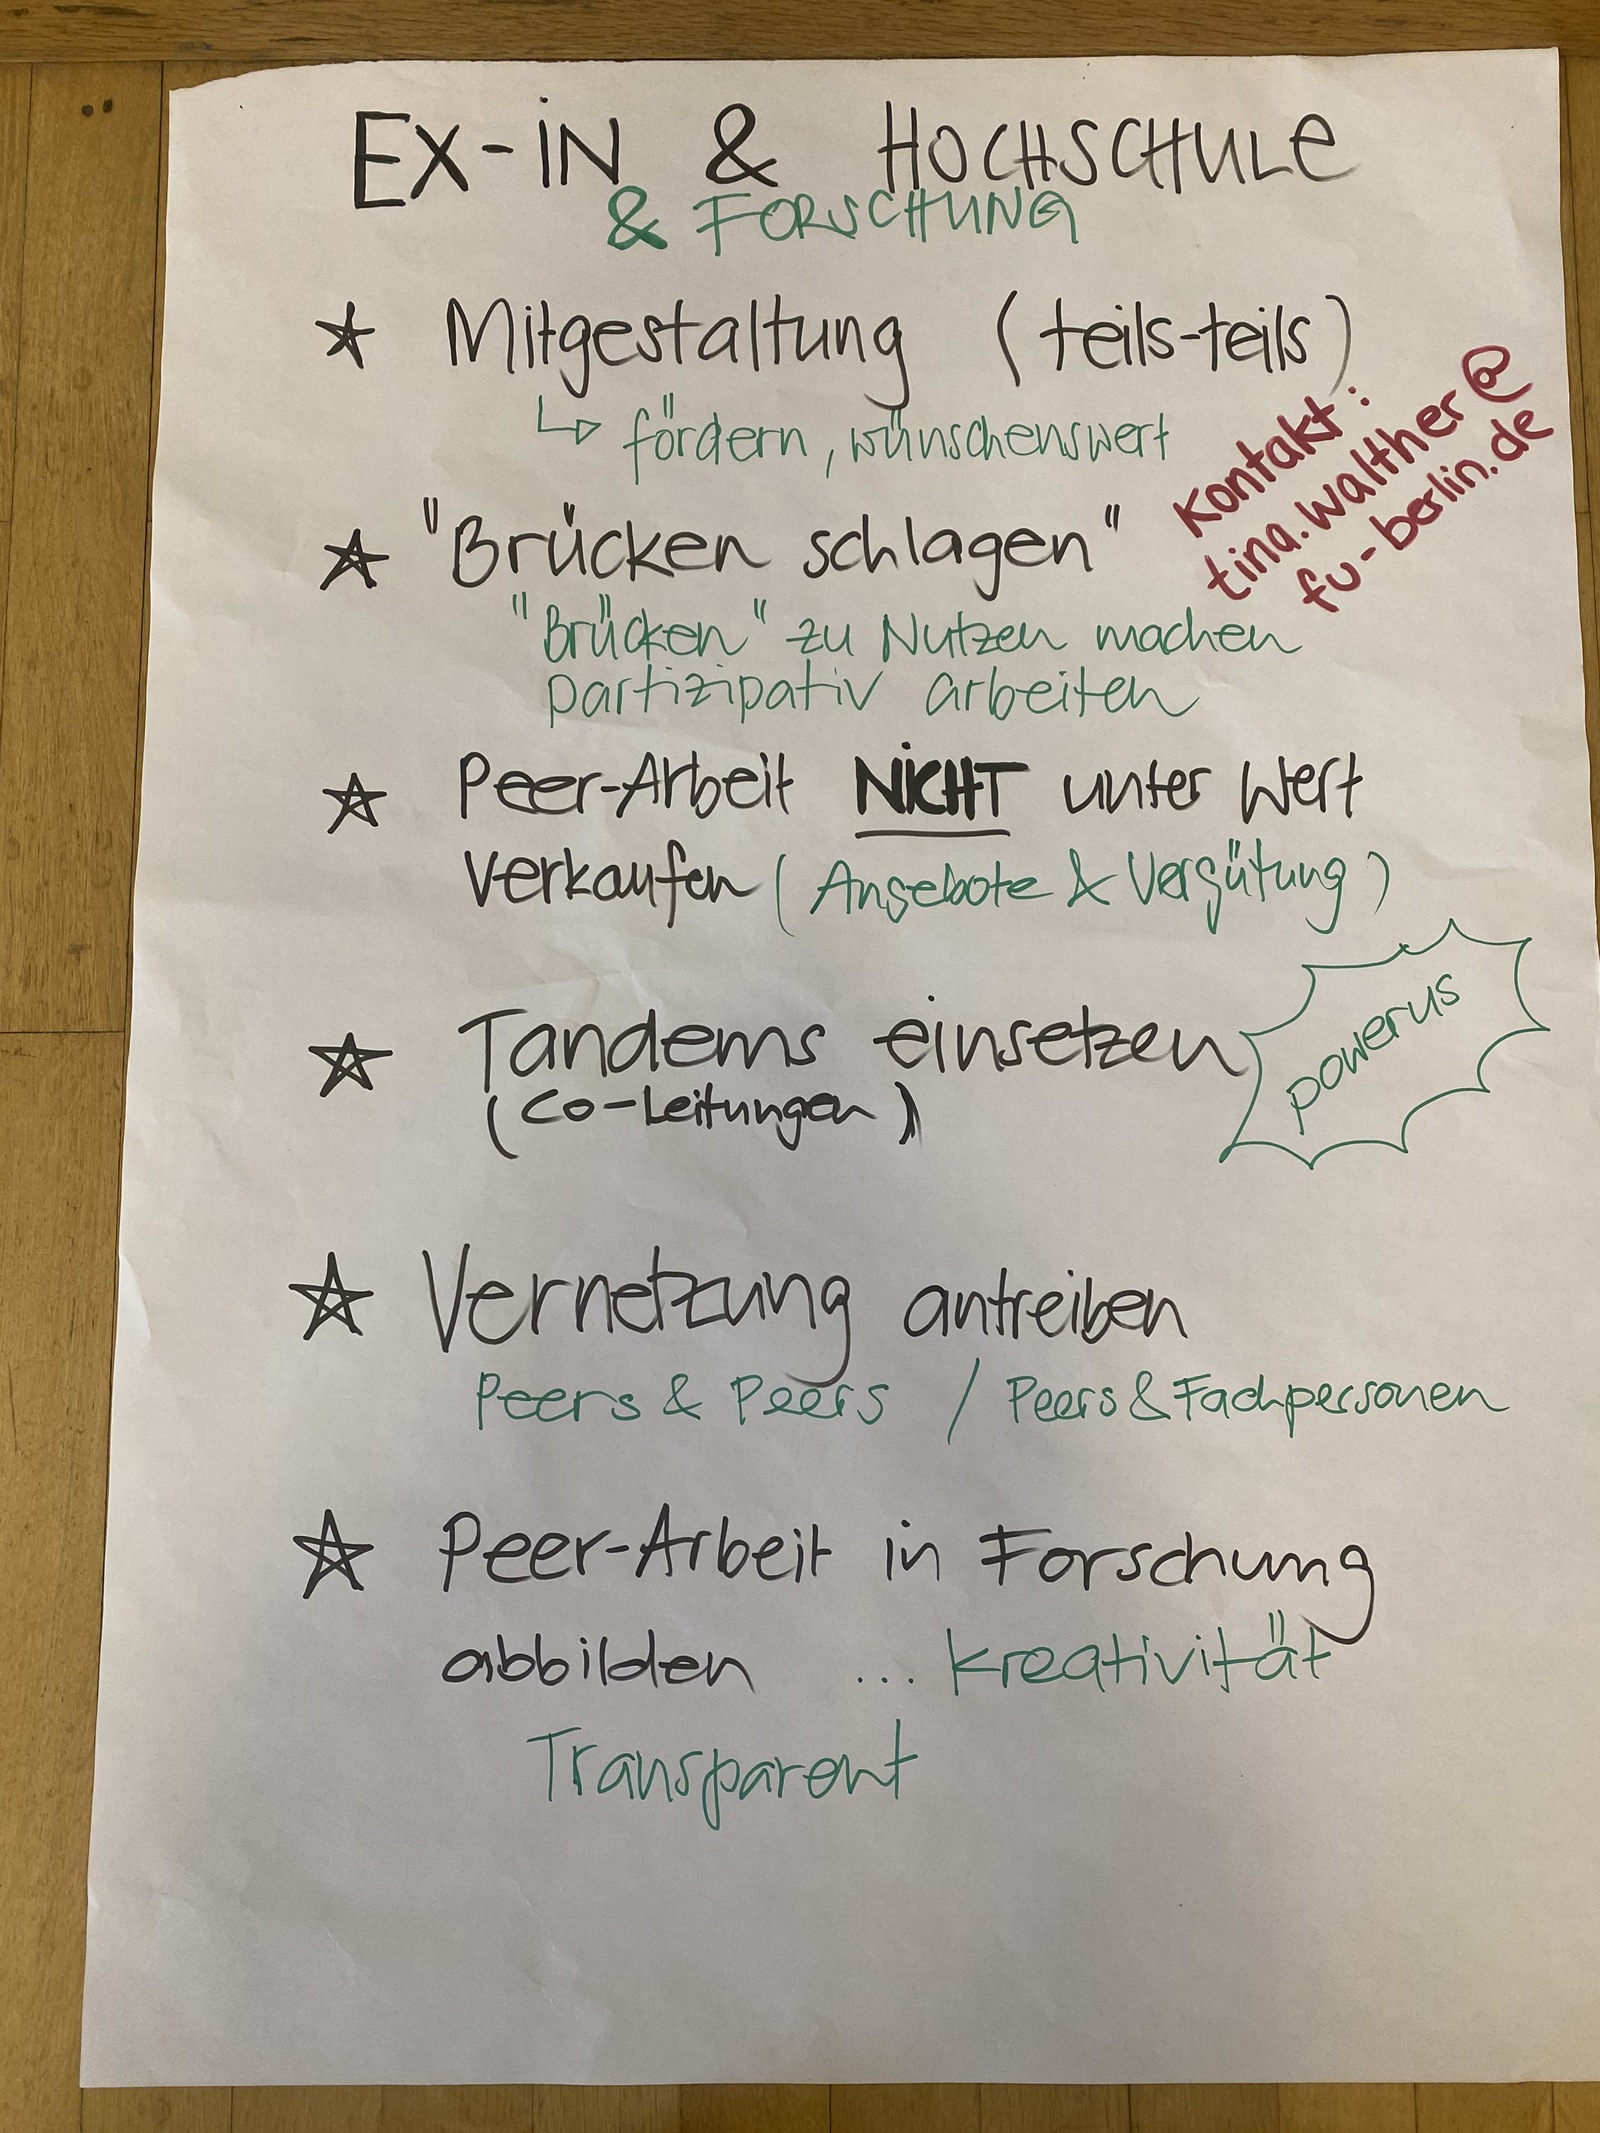 EX-iN & HOCHSCHULE
& FORSCHUNG
Mitgestaltung (teils-teils)
fördern, wünschenswert
Kontakt:
tina.walther@
fu-berlin.de
"Brücken schlagen"
"Brücken" zu Nutzen machen
partizipativ arbeiten
Peer-Arbeit NiCHT unter Wert
verkaufen (Angebote & Vergütung)
Tandems einsetzen
(Co-Leitungen)
powerus
Vernetzung antreiben
Peers & Peers / Peers & Fachpersonen
Peer-Arbeit in Forschung
abbilden ... kreativität
Transparent